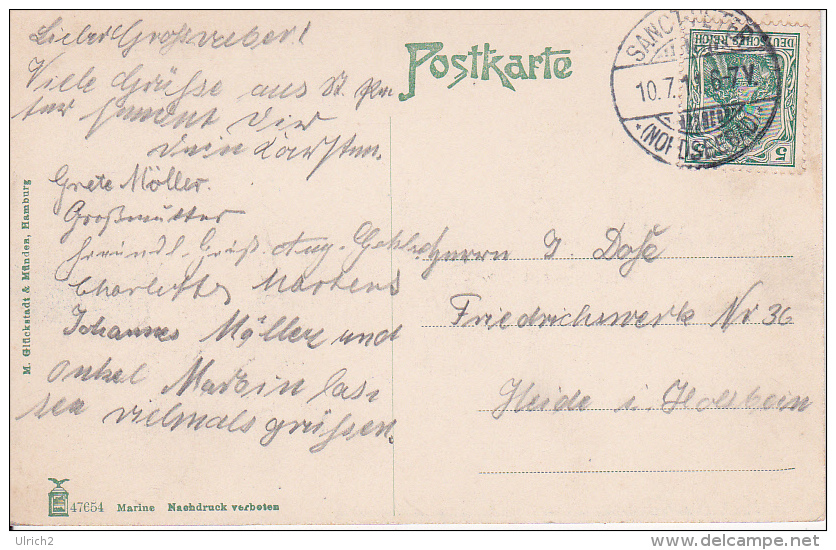 Lieber Grossvater!
Viele Grüsse aus St. Pe-
ter sendet Dir
Dein Karsten.
Grete Möller.
Großmutter
freundl. Gruß. Aug.
Charlotte Martens
Johannes Möller und
Onkel Martin las-
sen vielmals grüssen.
Postkarte
SANCT PETER
10.7.11. 6-7V.
(NORDSEEBAD)
DEUTSCHES REICH
5
Herrn J. Dose
Friedrichswerk Nr 36
Heide i. Holstein
M. Glückstadt & Münden, Hamburg
47654 Marine Nachdruck verboten
Ulrich2
delcampe.net